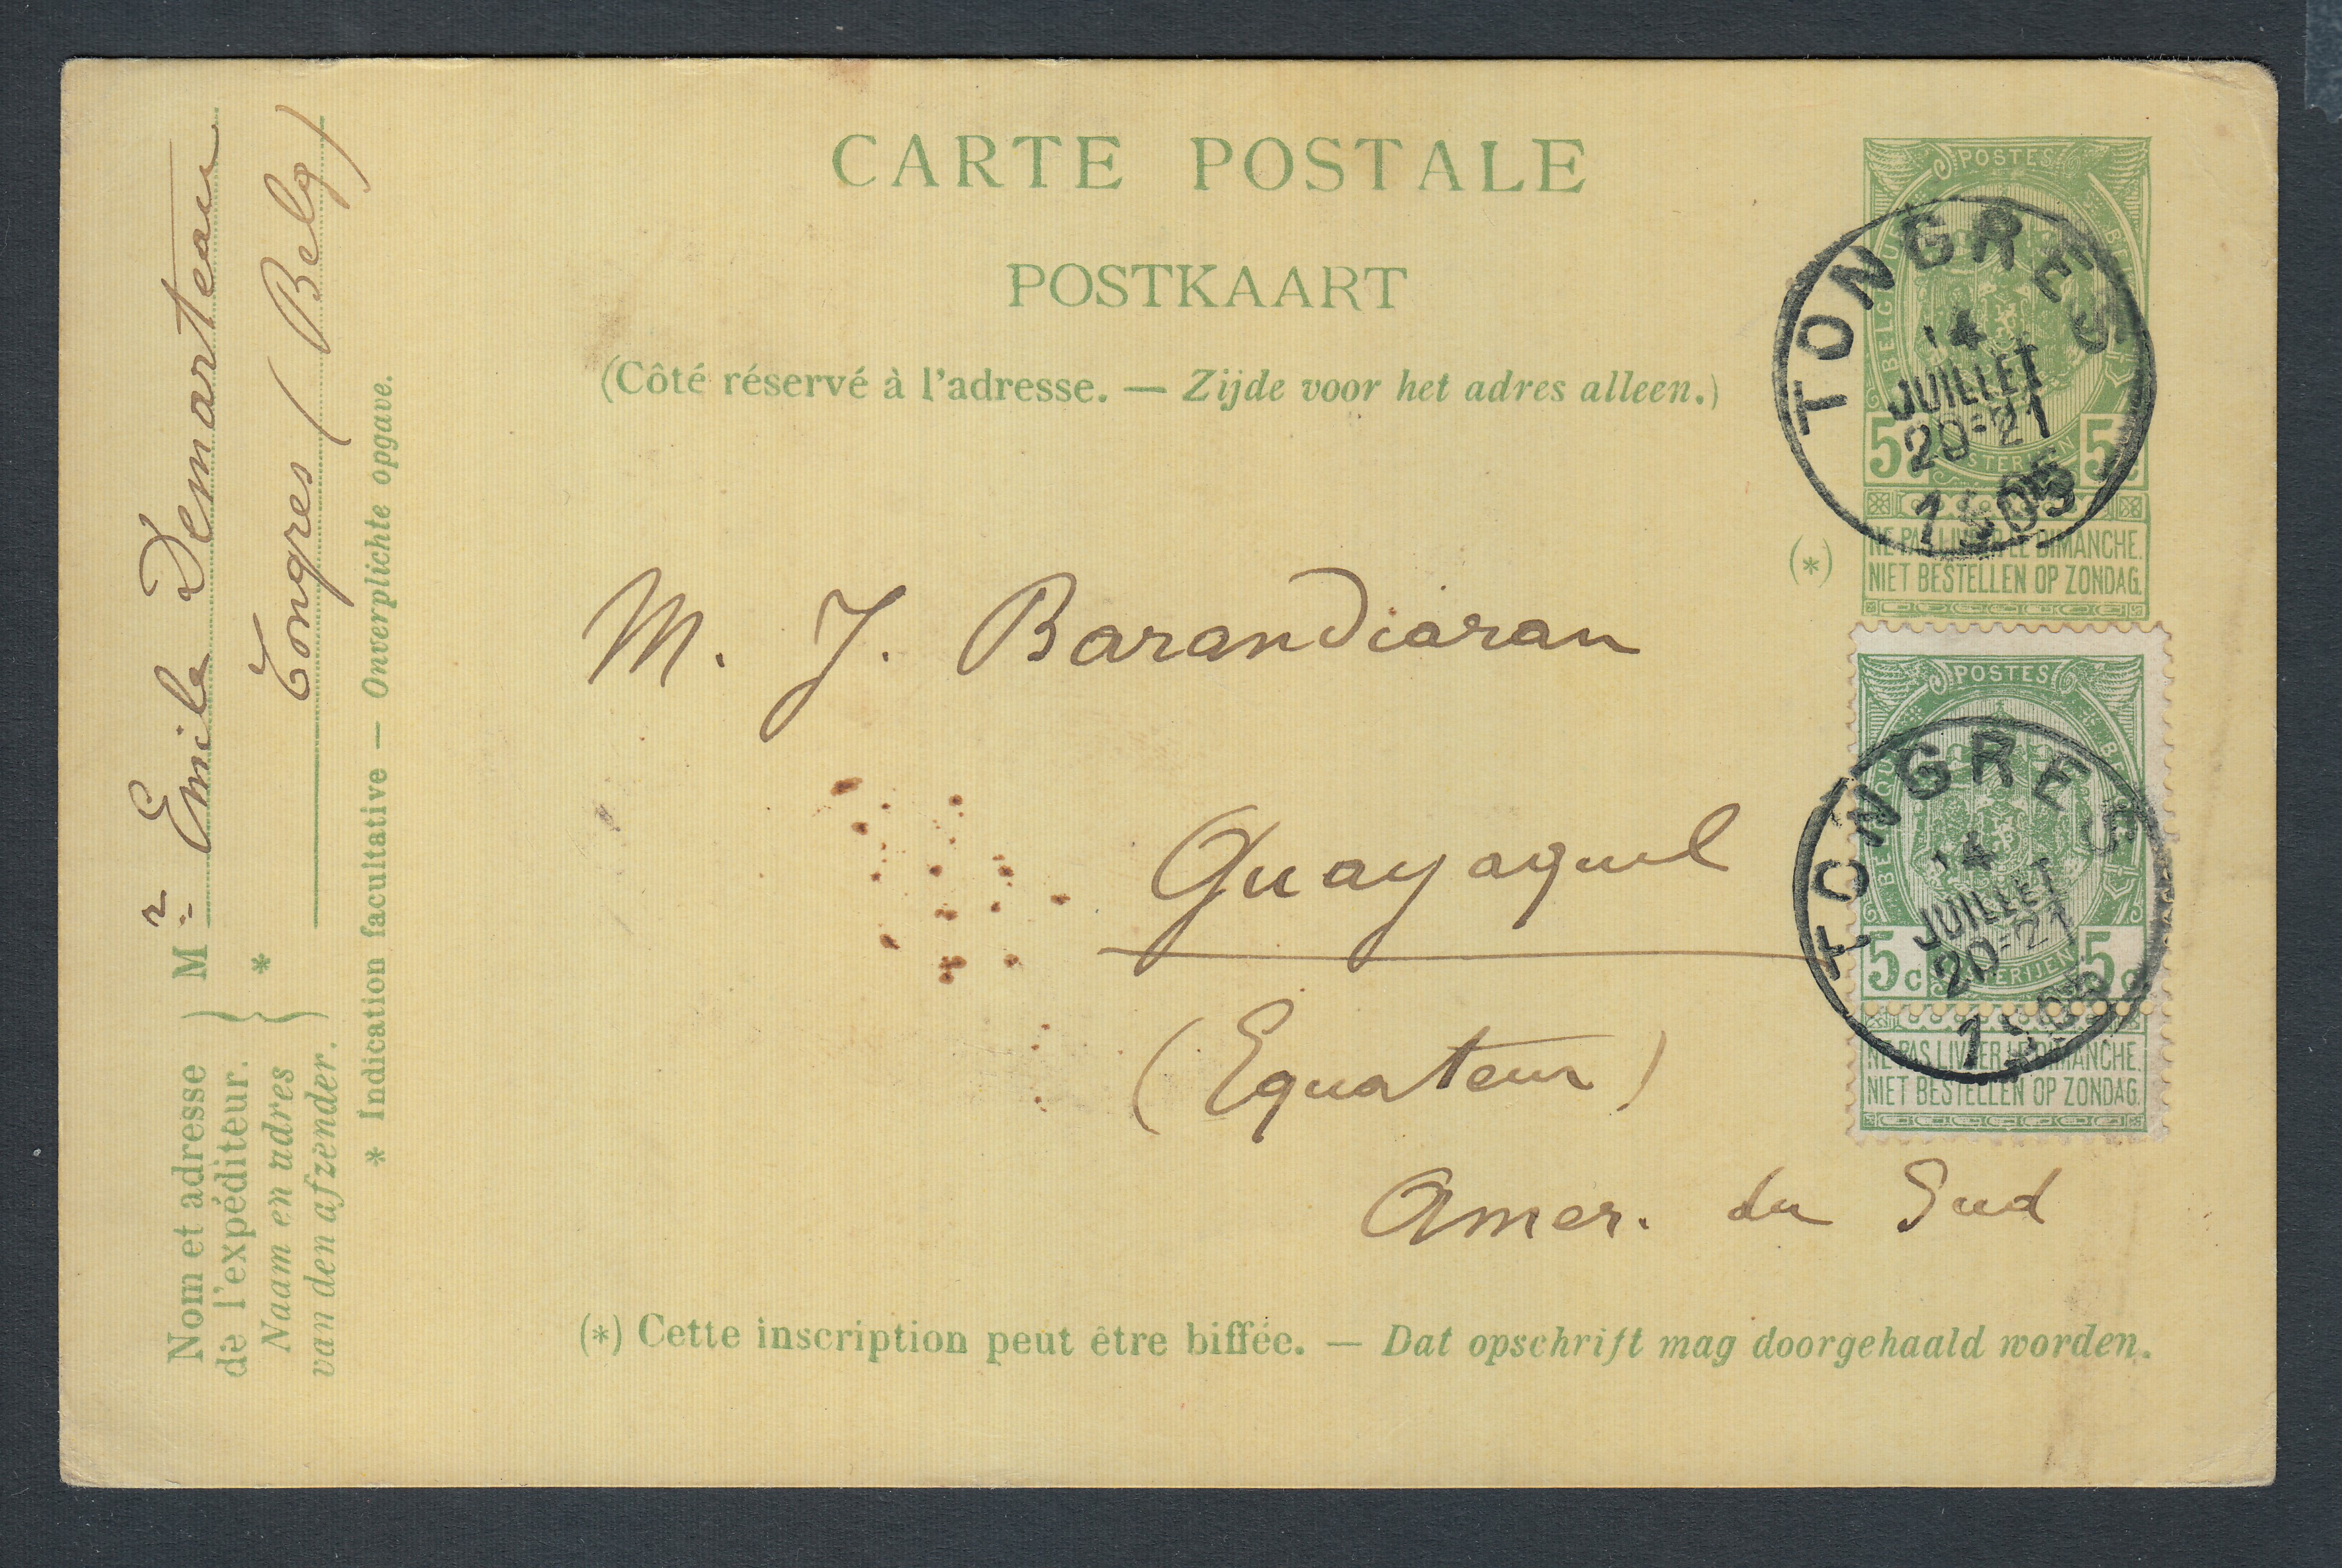 CARTE POSTALE
POSTKAART
(Côté réservé à l'adresse. — Zijde voor het adres alleen.)
M. J. Barandiaran
Guayaquil
(Equateur)
Amer. du Sud
(*) Cette inscription peut être biffée. — Dat opschrift mag doorgehaald worden.
Nom et adresse
de l'expéditeur.
Naam en adres
van den afzender.
Mr Emile Demarteau
* Tongres (Belg)
* Indication facultative — Onverplichte opgave.
POSTES
5c 5c
(*)
NE PAS LIVRER LE DIMANCHE.
NIET BESTELLEN OP ZONDAG.
TONGRES
14
JUILLET
20-21
1905
POSTES
5c 5c
NE PAS LIVRER LE DIMANCHE.
NIET BESTELLEN OP ZONDAG.
TONGRES
14
JUILLET
20-21
1905